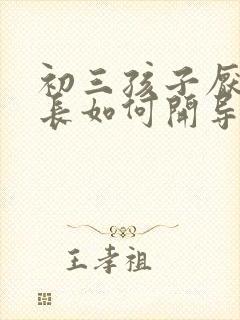 初三孩子厌
长如何开导
王孝祖